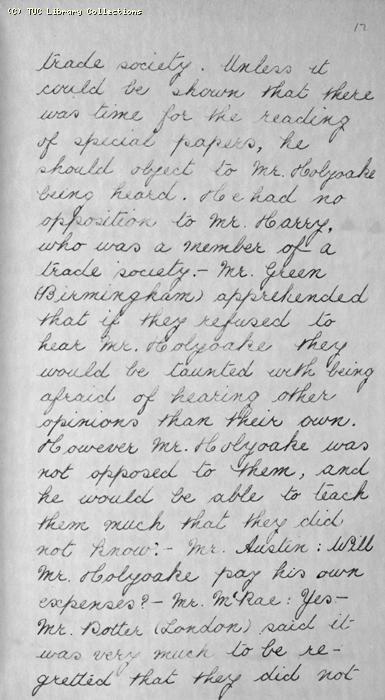 (C) TUC Library Collections
12
trade society. Unless it
could be shown that there
was time for the reading
of special papers, he
should object to Mr. Holyoake
being heard. He had no
opposition to Mr. Harry,
who was a member of a
trade society.- Mr. Green
(Birmingham) apprehended
that if they refused to
hear Mr. Holyoake they
would be taunted with being
afraid of hearing other
opinions than their own.
However Mr. Holyoake was
not opposed to them, and
he would be able to teach
them much that they did
not know:- Mr. Austin: Will
Mr. Holyoake pay his own
expenses?- Mr. McRae: Yes-
Mr. Potter (London) said it
was very much to be re-
gretted that they did not